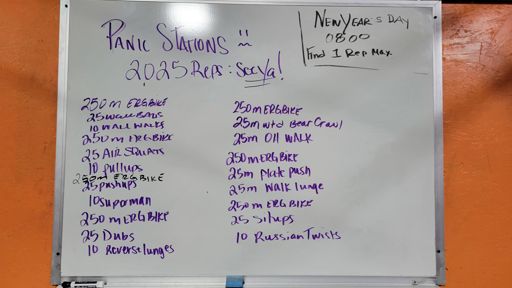 Panic Stations :
2,025 Reps: See Ya!
New Year's Day
0800
Find 1 Rep Max
250m ERGBIKE
25 Wall Balls
10 Wall Walks
250m ERGBIKE
25 Air Squats
10 pullups
250m ERGBIKE
25 pushups
10 superman
250m ERGBIKE
25 Dubs
10 Reverse lunges
250m ERGBIKE
25m wtd Bear Crawl
25m OH WALK
250m ERGBIKE
25m Plate push
25m Walk lunge
250m ERGBIKE
25 Situps
10 Russian Twists